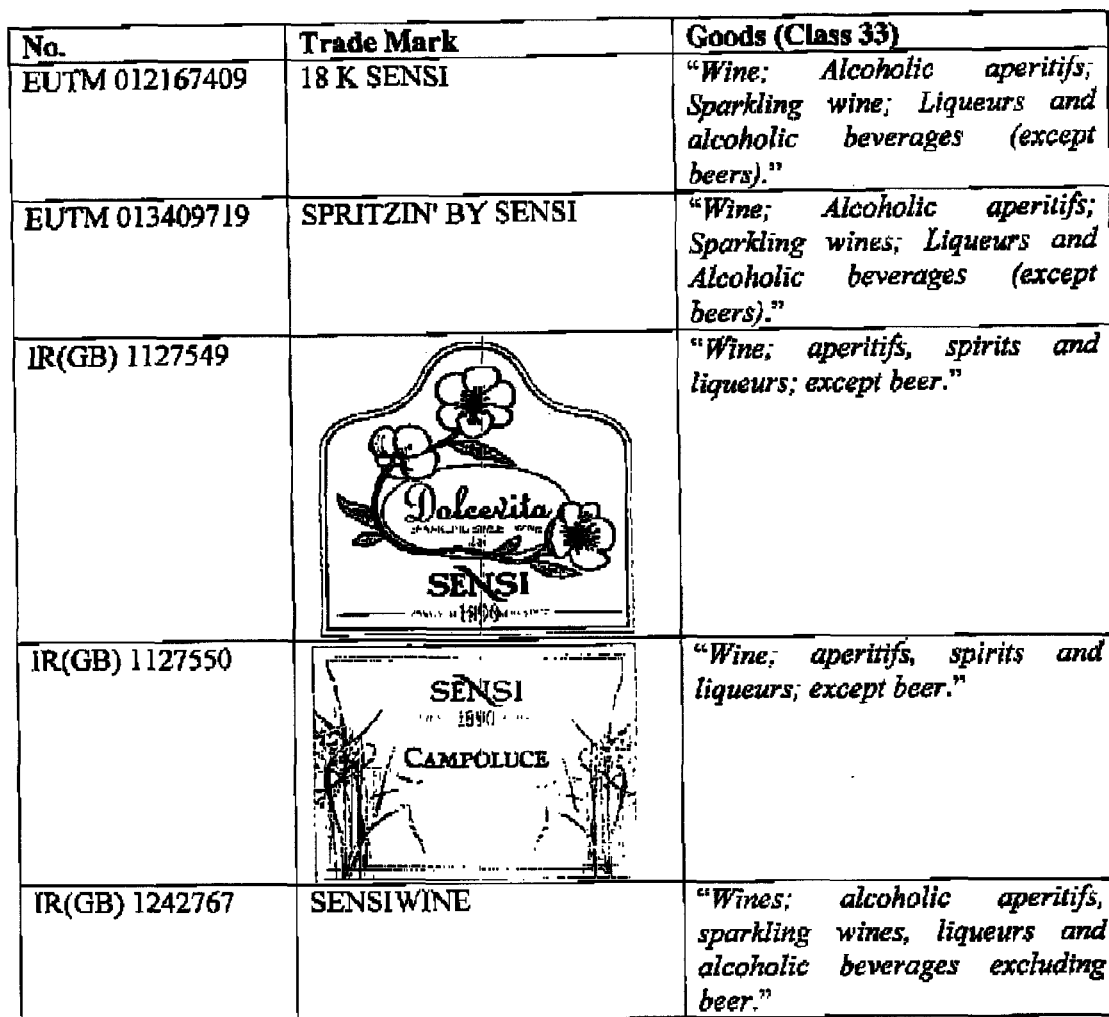 No. Trade Mark Goods (Class 33)
EUTM 012167409 18 K SENSI "Wine; Alcoholic aperitifs;
Sparkling wine; Liqueurs and
alcoholic beverages (except
beers)."
EUTM 013409719 SPRITZIN' BY SENSI "Wine; Alcoholic aperitifs;
Sparkling wines; Liqueurs and
Alcoholic beverages (except
beers)."
IR(GB) 1127549 "Wine; aperitifs, spirits and
liqueurs; except beer."
Dolcevita
SENSI
1890
IR(GB) 1127550 "Wine; aperitifs, spirits and
liqueurs; except beer."
SENSI
1890
CAMPOLUCE
IR(GB) 1242767 SENSIWINE "Wines; alcoholic aperitifs,
sparkling wines, liqueurs and
alcoholic beverages excluding
beer."